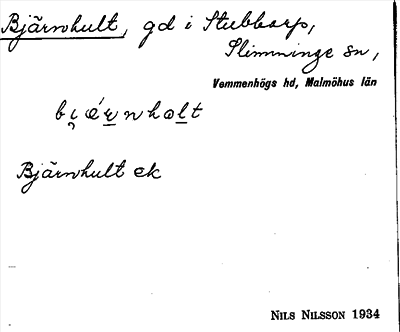 Bjärnhult, gd i Stubbarp,
Slimminge sn,
Vemmenhögs hd, Malmöhus län
bi̯ǽr̲nhol̲t
Bjärnhult ek
NILS NILSSON 1934